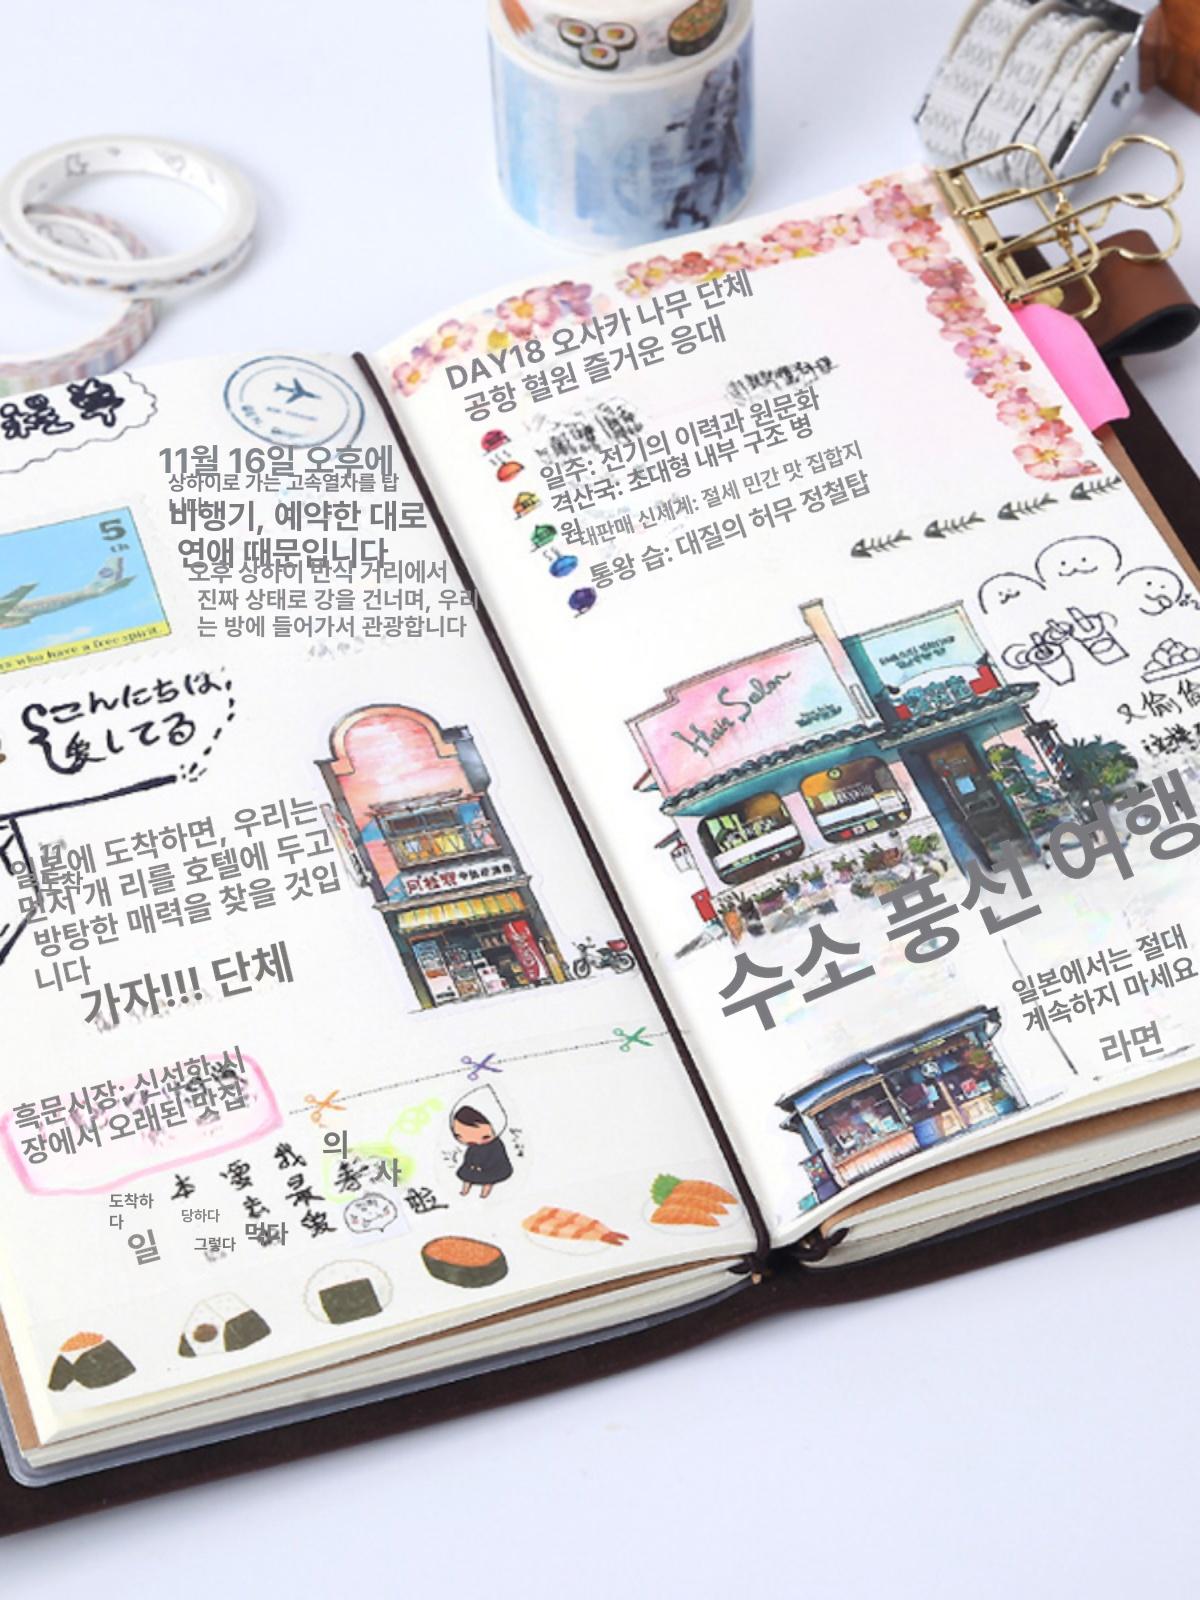 11월 16일 오후에
상하이로 가는 고속열차를 탑
니다
비행기, 예약한 대로
연애 때문입니다
오후 상하이 반식 거리에서
진짜 상태로 강을 건너며, 우리
는 방에 들어가서 관광합니다
5
who have a free spirit
こんにちは,
愛してる
일본에 도착하면, 우리는
먼저 개 리를 호텔에 두고
방탕한 매력을 찾을 것입
니다
도착
가자!!! 단체
흑문시장: 신선한 시
장에서 오래된 맛집
의
사
我
本
要
去
最
爱
寿
啦
도착하
다
당하다
일
그렇다
먹다
DAY18 오사카 나무 단체
공항 혈원 즐거운 응대
일주: 전기의 이력과 원문화
격산국: 초대형 내부 구조 병
원
내판매 신세계: 절세 민간 맛 집합지
통왕 습: 대질의 허무 정철탑
Hair Salon
又偷偷
수소 풍선 여행
일본에서는 절대
계속하지 마세요
라면